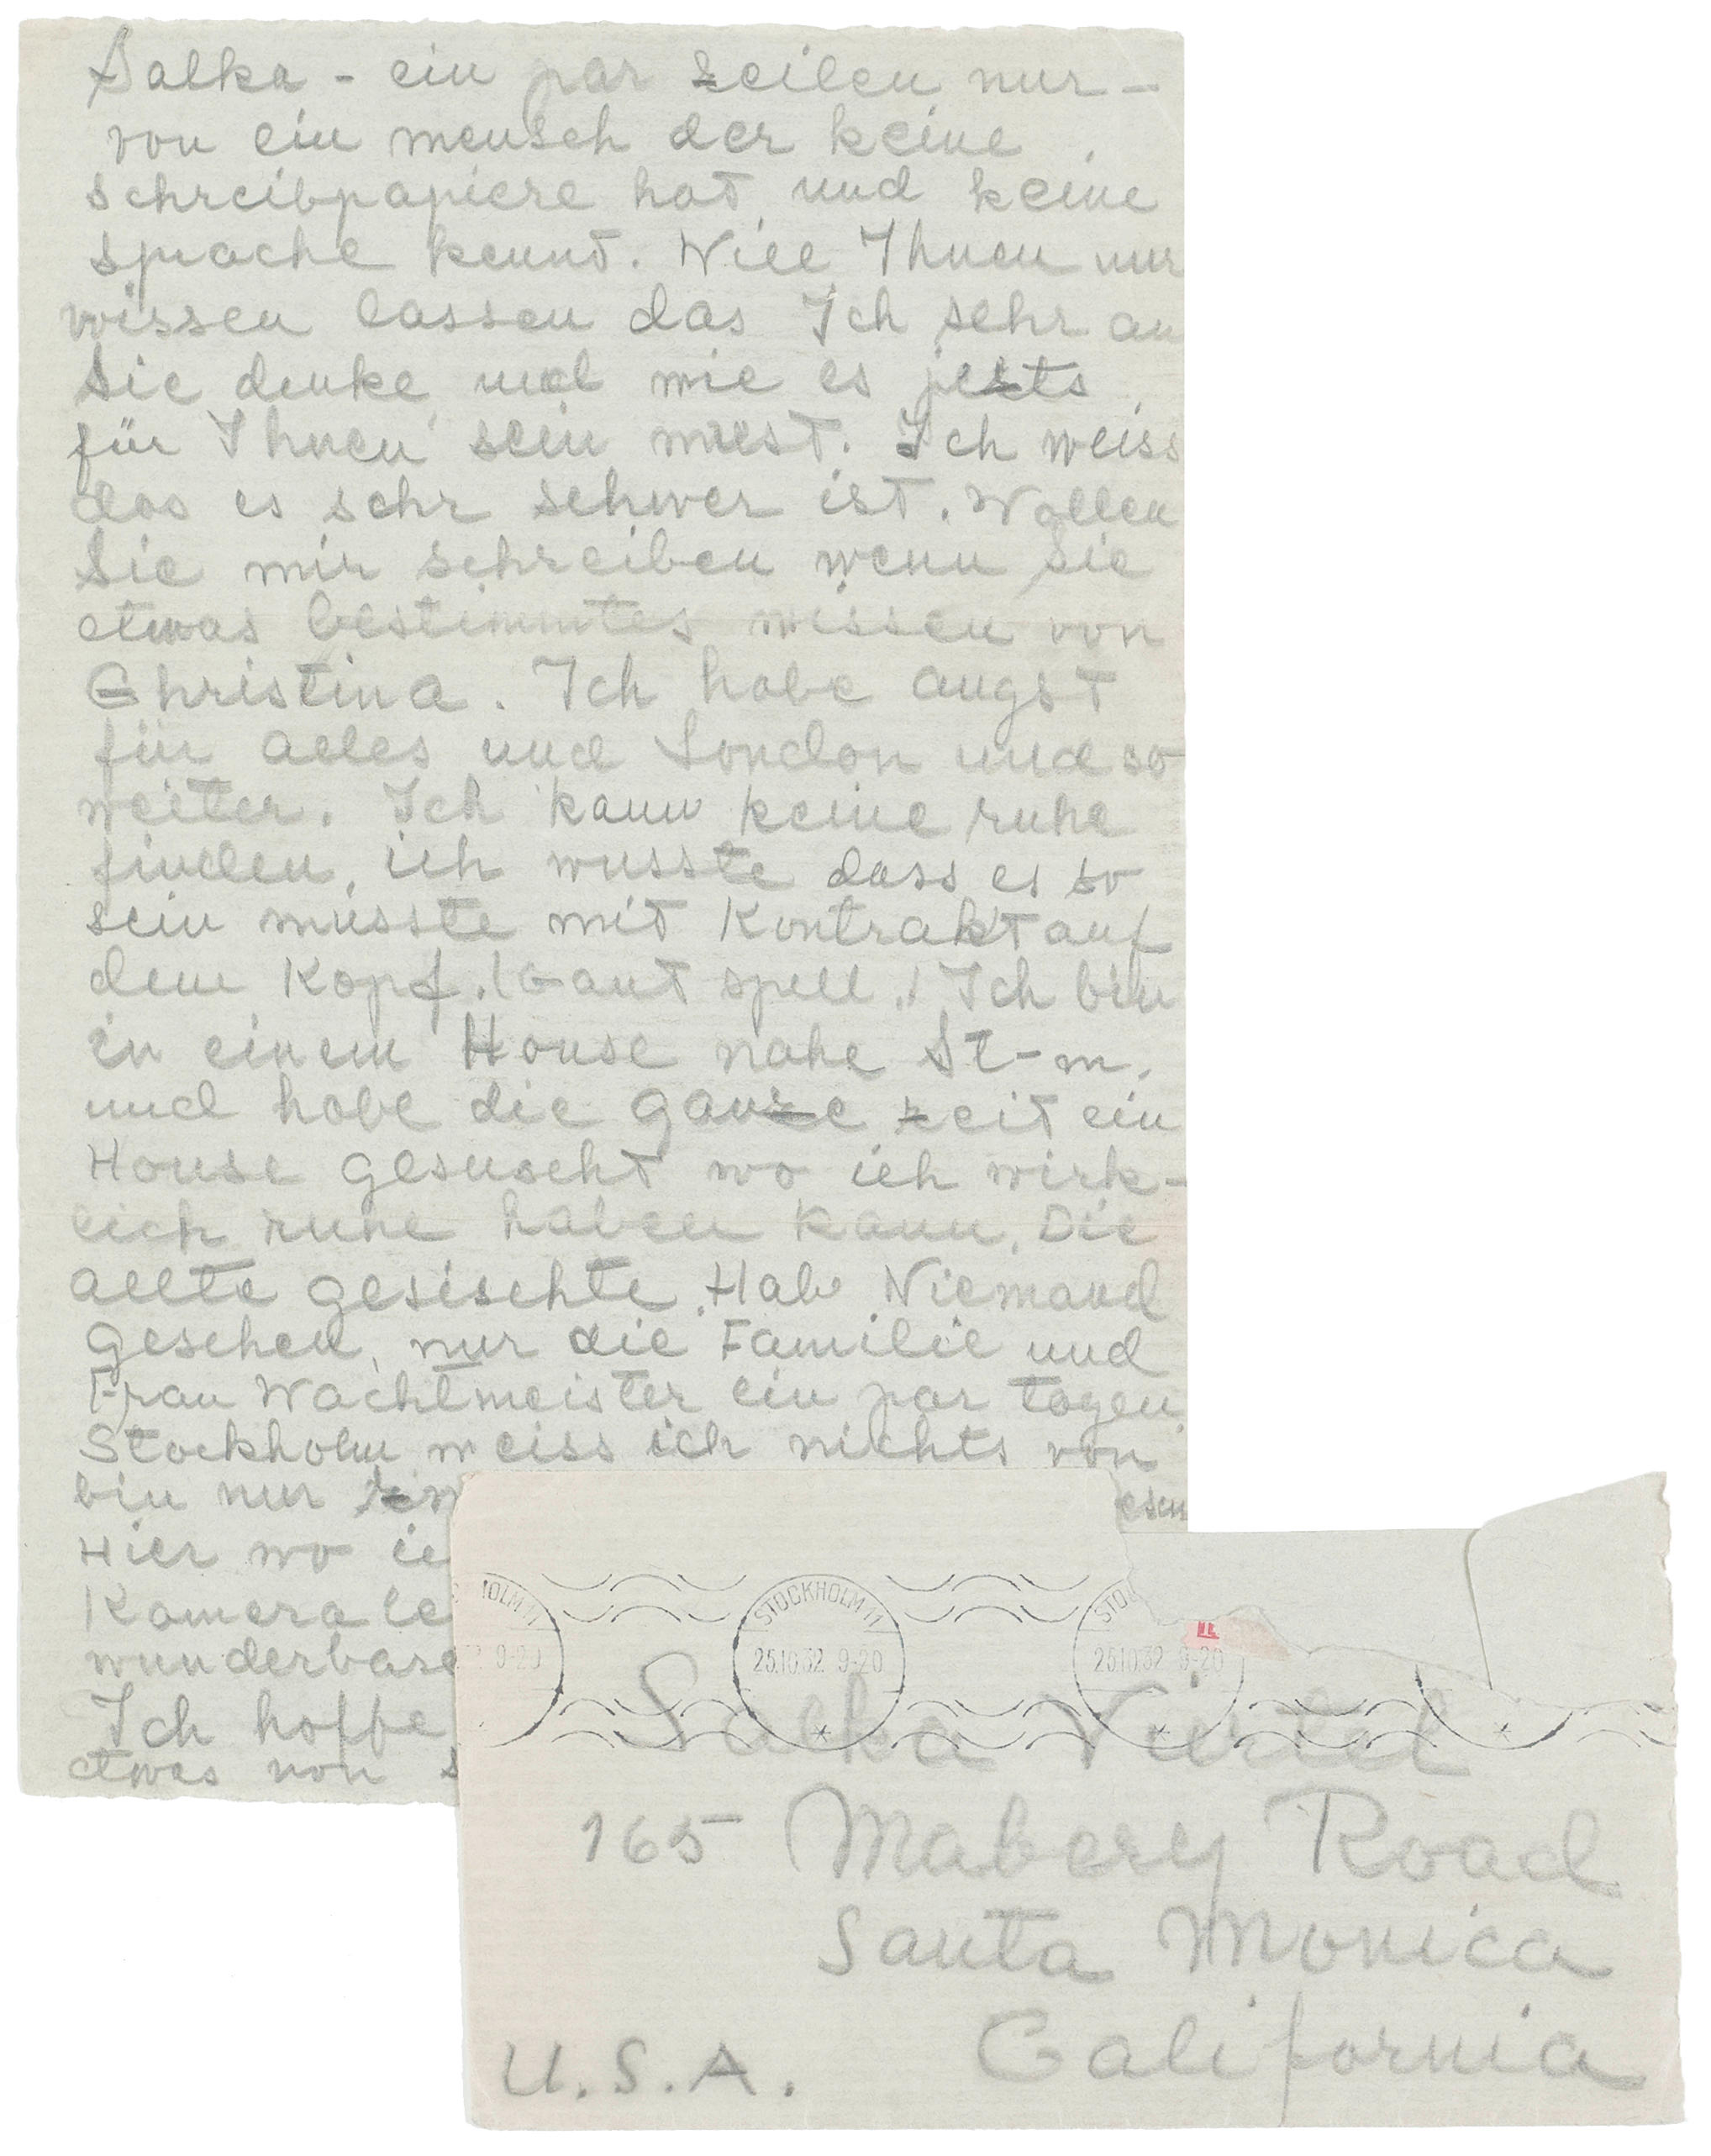 Salka - ein par zeilen nur -
von ein mensch der keine
schreibpapiere hat und keine
sprache kennt. Will Ihnen nur
wissen lassen das Ich sehr an
Sie denke und wie es jetzts
für Ihnen sein muest. Ich weiss
das es sehr schwer ist. Wollen
Sie mir schreiben wenn Sie
etwas bestimmtes wissen von
Christina. Ich habe angst
für alles und London und so
weiter. Ich kann keine ruhe
finden, ich wusste dass es so
sein müsste mit Kontrakt auf
dem Kopf. (Cant spell.) Ich bin
in einem House nahe St-m.
und habe die ganze zeit ein
House gesuscht wo ich wirk-
lich ruhe haben kann. Die
allte gesischte. Hab Niemand
gesehen, nur die Familie und
Frau Wachtmeister ein par tagen
Stockholm weiss ich nichts von
bin nur esen
Hier wo ic
Kamera le
wunderbare
Ich hoffe
etwas von s
STOCKHOLM 11
25.10.32 9-20
Salka Viertel
165 Mabery Road
Santa Monica
California
U.S.A.